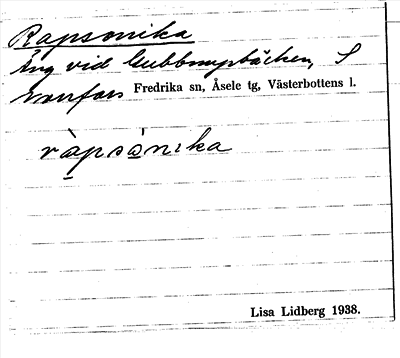 Rapsonika
Äng vid Gubbmyrbäcken, S
Fredrika sn, Åsele tg, Västerbottens l.
ràpsònika
Lisa Lidberg 1938.